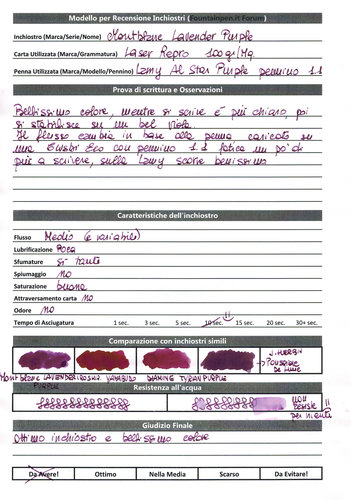 Modello per Recensione Inchiostri (Fountainpen.it Forum)
Inchiostro (Marca/Serie/Nome) Montblanc Lavender Purple
Carta Utilizzata (Marca/Grammatura) Laser Repro 100gr/Mq.
Penna Utilizzata (Marca/Modello/Pennino) Lamy Al Star Purple pennino 1.1
Prova di scrittura e Osservazioni
Bellissimo colore, mentre si scrive è più chiaro, poi
si stabilisce su un bel viola.
Il flusso cambia in base alla penna caricato su
una Twsbi Eco con pennino 1.1 fatica un po' di
più a scrivere, sulla Lamy scorre benissimo
Caratteristiche dell'inchiostro
Flusso Medio (è variabile)
Lubrificazione Poca
Sfumature si tante
Spiumaggio no
Saturazione buona
Attraversamento carta no
Odore no
Tempo di Asciugatura 1 sec. 3 sec. 5 sec. 10 sec. 15 sec. 20 sec. 30+ sec.
Comparazione con inchiostri simili
J. Herbin
Poussière
de Lune
Montblanc Lavender Purple Diamine Tyrian Purple
Resistenza all'acqua
non
resiste
per niente
Giudizio Finale
Ottimo inchiostro e bellissimo colore
Da Avere! Ottimo Nella Media Scarso Da Evitare!